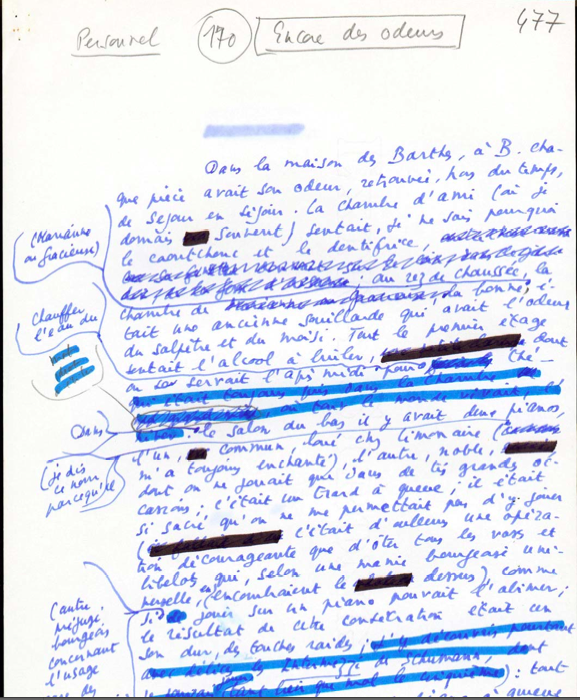 Personnel 170 Encore des odeurs 477
Dans la maison des Barthes, à B. cha-
que pièce avait son odeur, retrouvée, hors du temps,
de séjour en séjour. La chambre d'ami (où je
dormais souvent) sentait, je ne sais pourquoi
le caoutchouc et le dentifrice,
au rez de chaussée, la
(Marianne
ou Gracieuse)
chambre de la bonne, é-
tait une ancienne souillarde qui avait l'odeur
du salpêtre et du moisi. Tout le premier étage
sentait l'alcool à brûler, dont
Chauffer
l'eau du
on se servait l'après midi pour thé
qui était toujours pris dans la chambre
où tout le monde vivait
Dans
le salon du bas il y avait deux pianos,
l'un, commun, loué chez Limonaire
(je dis
ce nom
parce qu'il
m'a toujours enchanté), l'autre, noble,
dont on ne jouait que dans de très grandes oc-
casions; c'était un Erard à queue; il était
si sacré qu'on ne me permettait pas d'y jouer
( c'était d'ailleurs une opéra-
tion décourageante que d'ôter tous les vases et
bibelots qui, selon une manie bourgeoise uni-
verselle, (encombraient le dessus) comme
si jouer sur un piano pouvait l'abîmer;
(autre
préjugé
bourgeois
concernant
l'usage
le résultat de cette consécration était un
son dur, des touches raides; j'y découvris pourtant
avec délices les Intermezzi de Schumann, dont
tout